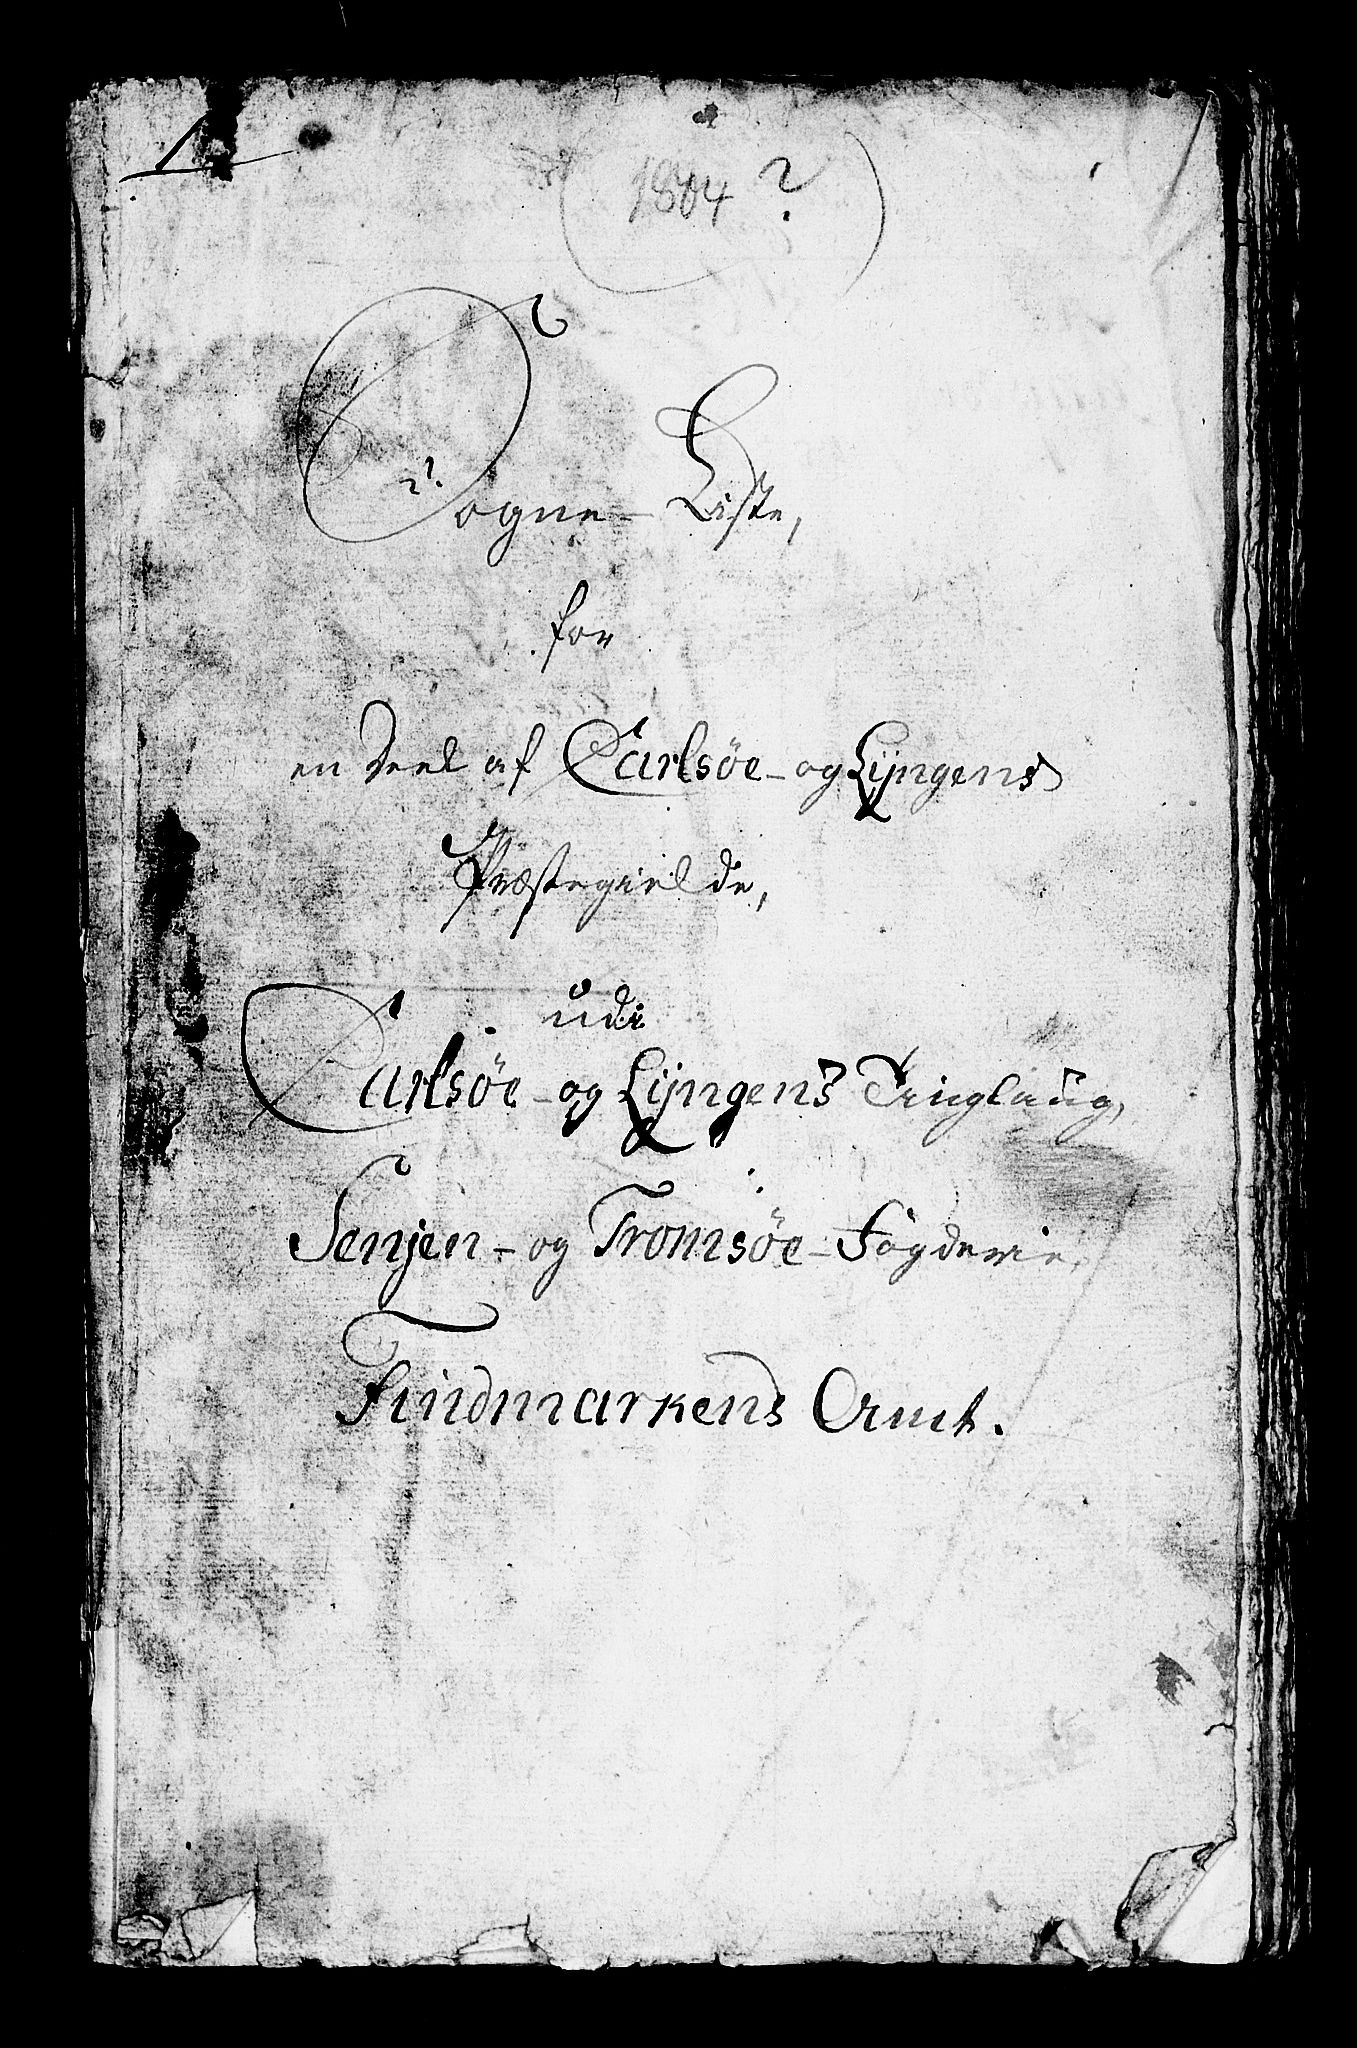 1
(1804 ?)
Sogne-Liste,
for
en Deel af Carlsøe- og Lÿngens
Præstegielde,
udi
Carlsøe- og Lÿngens Tinglaug,
Senjen- og Tromsøe-Fogderie,
Findmarkens Amt.